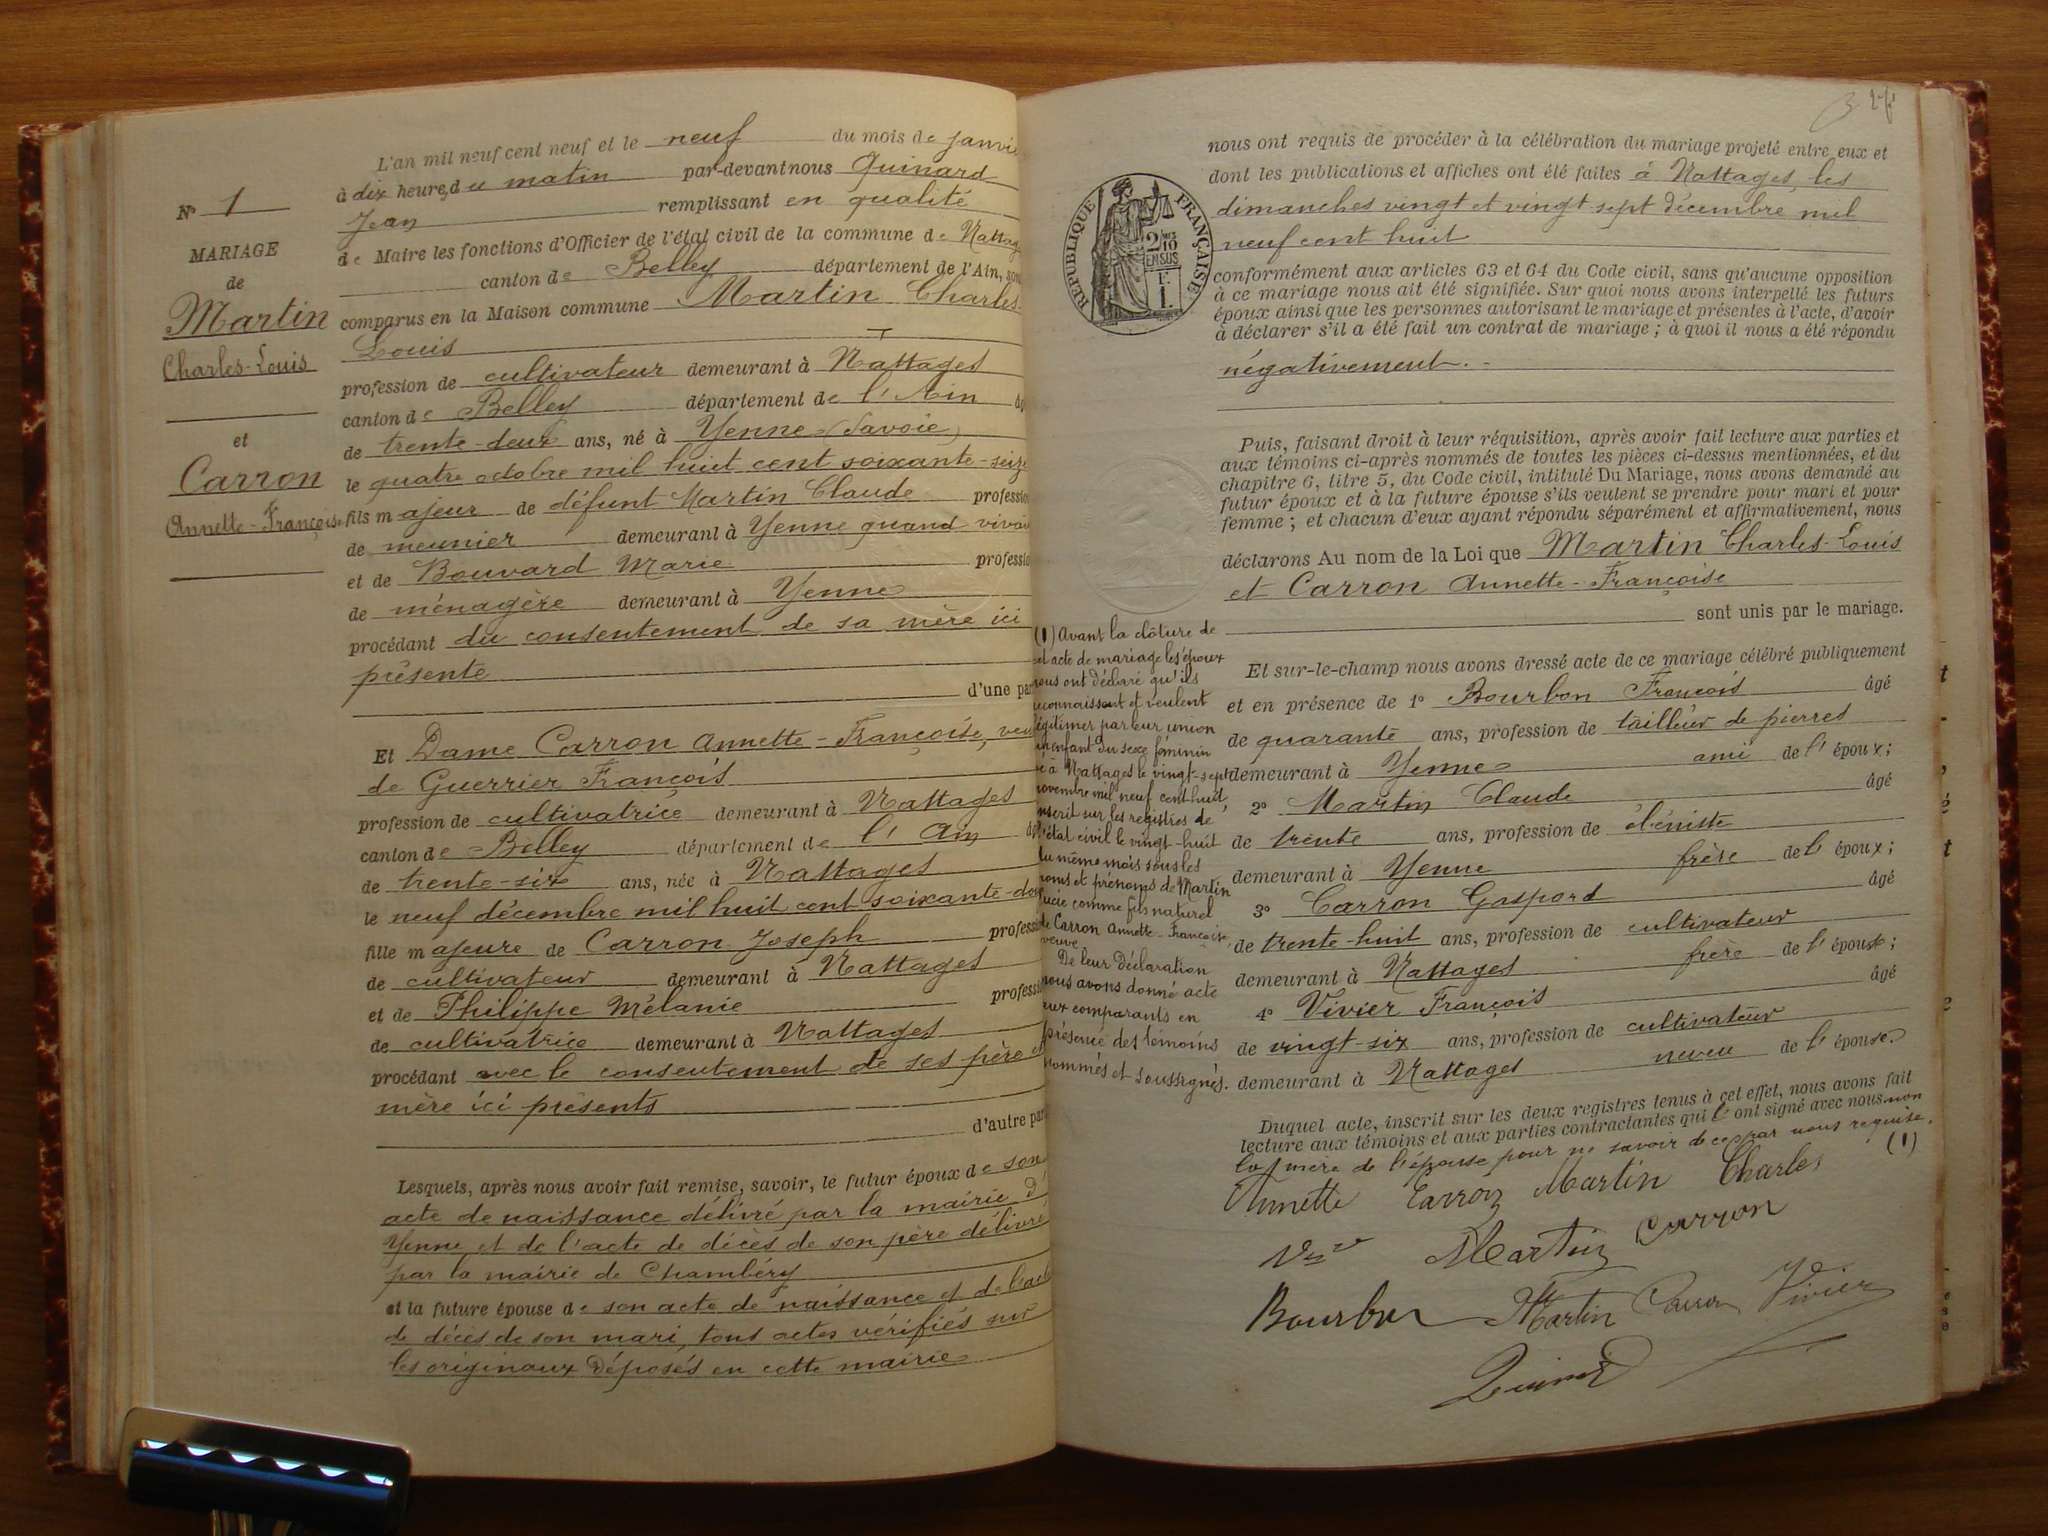 N° 1
MARIAGE
de
Martin
Charles-Louis
et
Carron
Annette-Françoise
L'an mil neuf cent neuf et le neuf du mois de janvi
à dix heures du matin par-devant nous Quinard
Jean remplissant en qualité
de Maire les fonctions d'Officier de l'état civil de la commune de Nattag
canton de Belley département de l'Ain, sont
comparus en la Maison commune Martin Charles-
Louis
profession de cultivateur demeurant à Nattages
canton de Belley département de l'Ain âgé
de trente-deux ans, né à Yenne (Savoie)
le quatre octobre mil huit cent soixante-seize
fils majeur de défunt Martin Claude profession
de meunier demeurant à Yenne quand vivai
et de Bouvard Marie profession
de ménagère demeurant à Yenne
procédant du consentement de sa mère ici
présente
d'une part
Et Dame Carron Annette-Françoise, veu
de Guerrier François
profession de cultivatrice demeurant à Nattages
canton de Belley département de l'Ain âg
de trente-six ans, née à Nattages
le neuf décembre mil huit cent soixante-douz
fille majeure de Carron Joseph professi
de cultivateur demeurant à Nattages
et de Philippe Mélanie professi
de cultivatrice demeurant à Nattages
procédant avec le consentement de ses père et
mère ici présents
d'autre part
Lesquels, après nous avoir fait remise, savoir, le futur époux de son
acte de naissance délivré par la mairie d'
Yenne et de l'acte de décès de son père délivré
par la mairie de Chambéry
et la future épouse de son acte de naissance et de l'acte
de décès de son mari, tous actes vérifiés sur
les originaux déposés en cette mairie
RÉPUBLIQUE FRANÇAISE
2/10
EN SUS
F.
1.
nous ont requis de procéder à la célébration du mariage projeté entre eux et
dont les publications et affiches ont été faites à Nattages, les
dimanches vingt et vingt-sept décembre mil
neuf cent huit
conformément aux articles 63 et 64 du Code civil, sans qu'aucune opposition
à ce mariage nous ait été signifiée. Sur quoi nous avons interpellé les futurs
époux ainsi que les personnes autorisant le mariage et présentes à l'acte, d'avoir
à déclarer s'il a été fait un contrat de mariage ; à quoi il nous a été répondu
négativement.
Puis, faisant droit à leur réquisition, après avoir fait lecture aux parties et
aux témoins ci-après nommés de toutes les pièces ci-dessus mentionnées, et du
chapitre 6, titre 5, du Code civil, intitulé Du Mariage, nous avons demandé au
futur époux et à la future épouse s'ils veulent se prendre pour mari et pour
femme ; et chacun d'eux ayant répondu séparément et affirmativement, nous
déclarons Au nom de la Loi que Martin Charles-Louis
et Carron Annette-Françoise
sont unis par le mariage.
Et sur-le-champ nous avons dressé acte de ce mariage célébré publiquement
et en présence de 1° Bourbon François âgé
de quarante ans, profession de tailleur de pierres
demeurant à Yenne ami de l'époux ;
2° Martin Claude âgé
de trente ans, profession de ébéniste
demeurant à Yenne frère de l'époux ;
3° Carron Gaspard âgé
de trente-huit ans, profession de cultivateur
demeurant à Nattages frère de l'épouse ;
4° Vivier François âgé
de vingt-six ans, profession de cultivateur
demeurant à Nattages neveu de l'épouse.
Duquel acte, inscrit sur les deux registres tenus à cet effet, nous avons fait
lecture aux témoins et aux parties contractantes qui l'ont signé avec nous non
la mère de l'épouse pour ne savoir de ce par nous requise.
(1)
Annette Carron Martin Charles
Vve Martin Carron
Bourbon Martin Carron Vivier
Quinard
(1) Avant la clôture de
cet acte de mariage les époux
nous ont déclaré qu'ils
reconnaissent et veulent
légitimer par leur union
un enfant du sexe féminin
né à Nattages le vingt-sept
novembre mil neuf cent huit,
inscrit sur les registres de
l'état civil le vingt-huit
du même mois sous les
noms et prénoms de Martin
Lucie comme fils naturel
de Carron Annette-Françoise,
veuve
De leur déclaration
nous avons donné acte
aux comparants en
présence des témoins
nommés et soussignés.